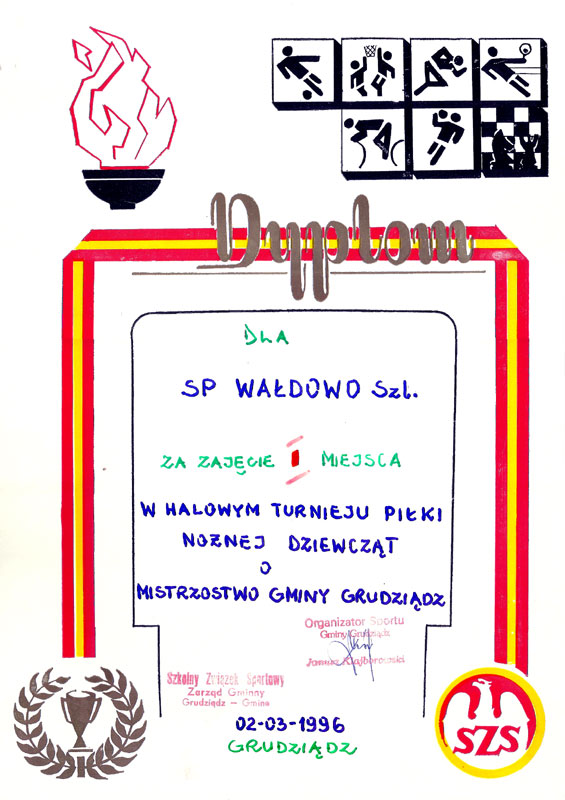 Dyplom
DLA
SP WAŁDOWO Szl.
ZA ZAJĘCIE I MIEJSCA
W HALOWYM TURNIEJU PIŁKI
NOŻNEJ DZIEWCZĄT
O
MISTRZOSTWO GMINY GRUDZIĄDZ
Organizator Sportu
Gminy Grudziądz
Janusz
Szkolny Związek Sportowy
Zarząd Gminny
Grudziądz – Gmina
02-03-1996
GRUDZIĄDZ
SZS